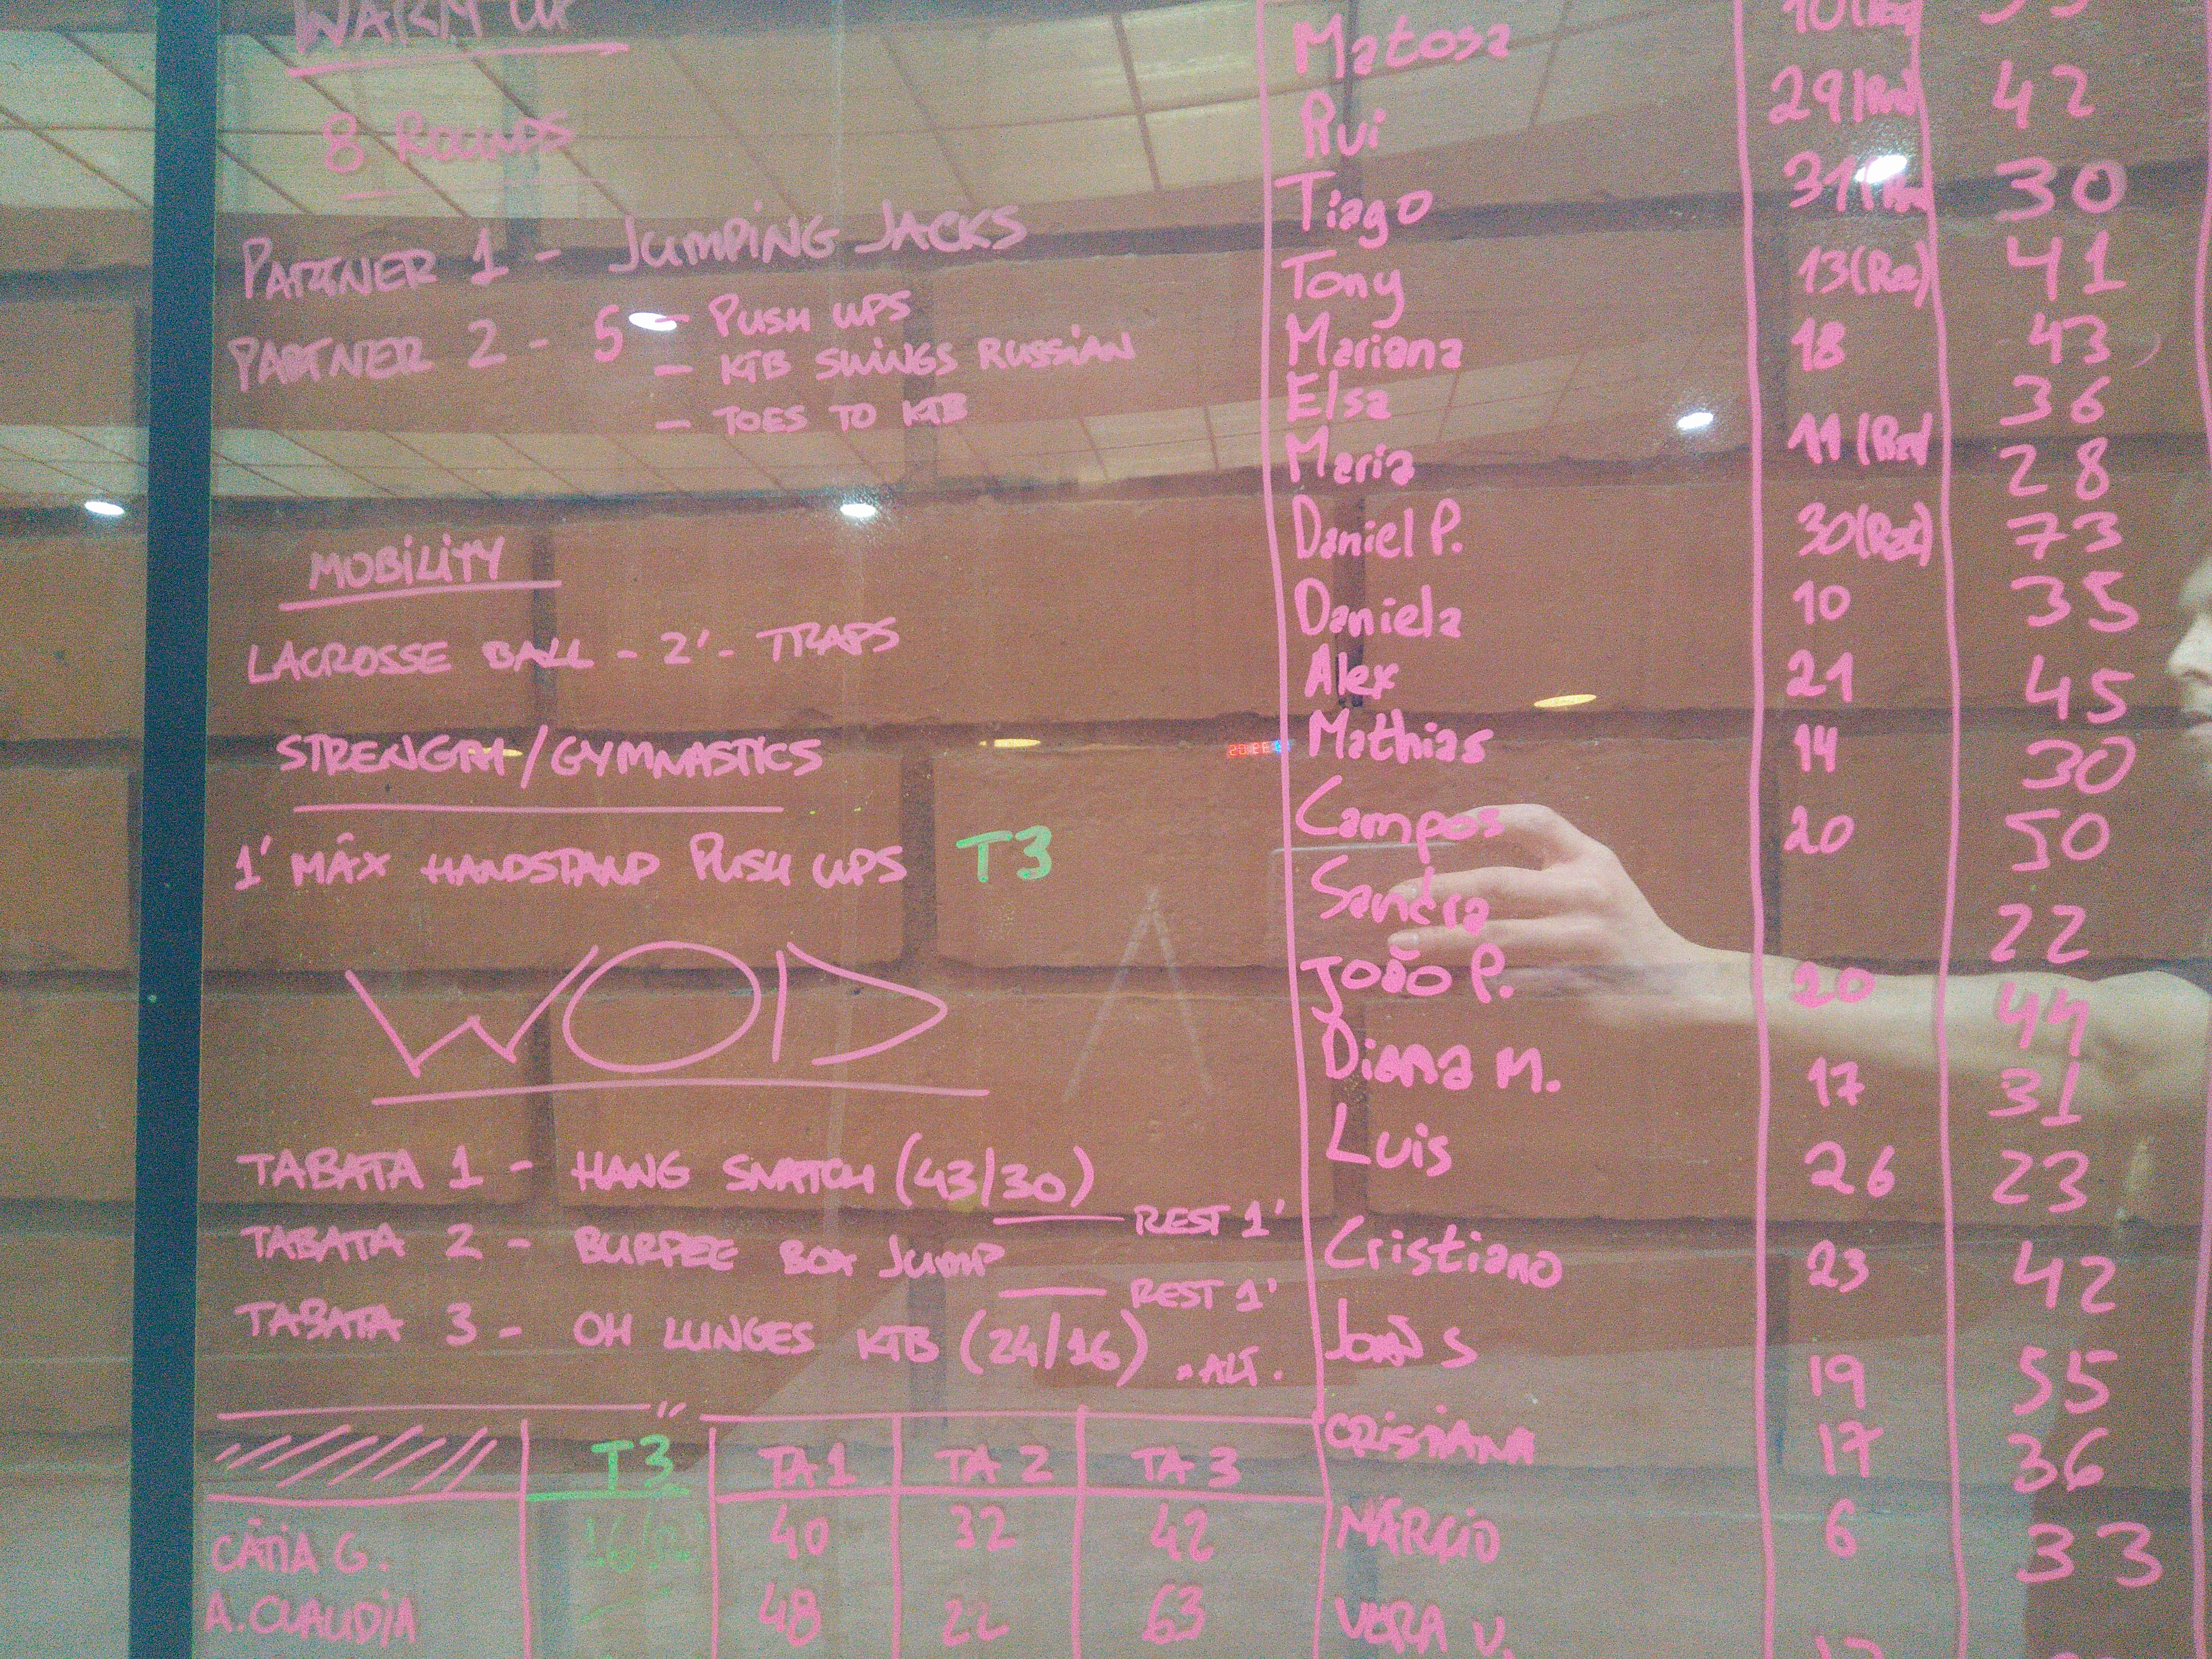 WARM UP
8 ROUNDS
PARTNER 1 - JUMPING JACKS
PARTNER 2 - 5 - PUSH UPS
- KTB SWINGS RUSSIAN
- TOES TO KTB
MOBILITY
LACROSSE BALL - 2' - TRAPS
STRENGTH/GYMNASTICS
1' MÁX HANDSTAND PUSH UPS T3
WOD
TABATA 1 - HANG SNATCH (43/30)
REST 1'
TABATA 2 - BURPEE BOX JUMP
REST 1'
TABATA 3 - OH LUNGES KTB (24/16) *ALT.
T3 TA 1 TA 2 TA 3
CÁTIA G. 40 32 42
A. CLAUDIA 48 22 63
Matosa
Rui 29 42
Tiago 31 30
Tony 13(Rx) 41
Mariana 18 43
Elsa 36
Maria 11 (Rx) 28
Daniel P. 30(Rx) 73
Daniela 10 35
Alex 21 45
Mathias 14 30
Campos 20 50
Sandra 22
João P. 20 44
Diana M. 17 31
Luis 26 23
Cristiano 23 42
João S 19 55
CRISTIANA 17 36
MÁRCIO 6 33
VERA V.